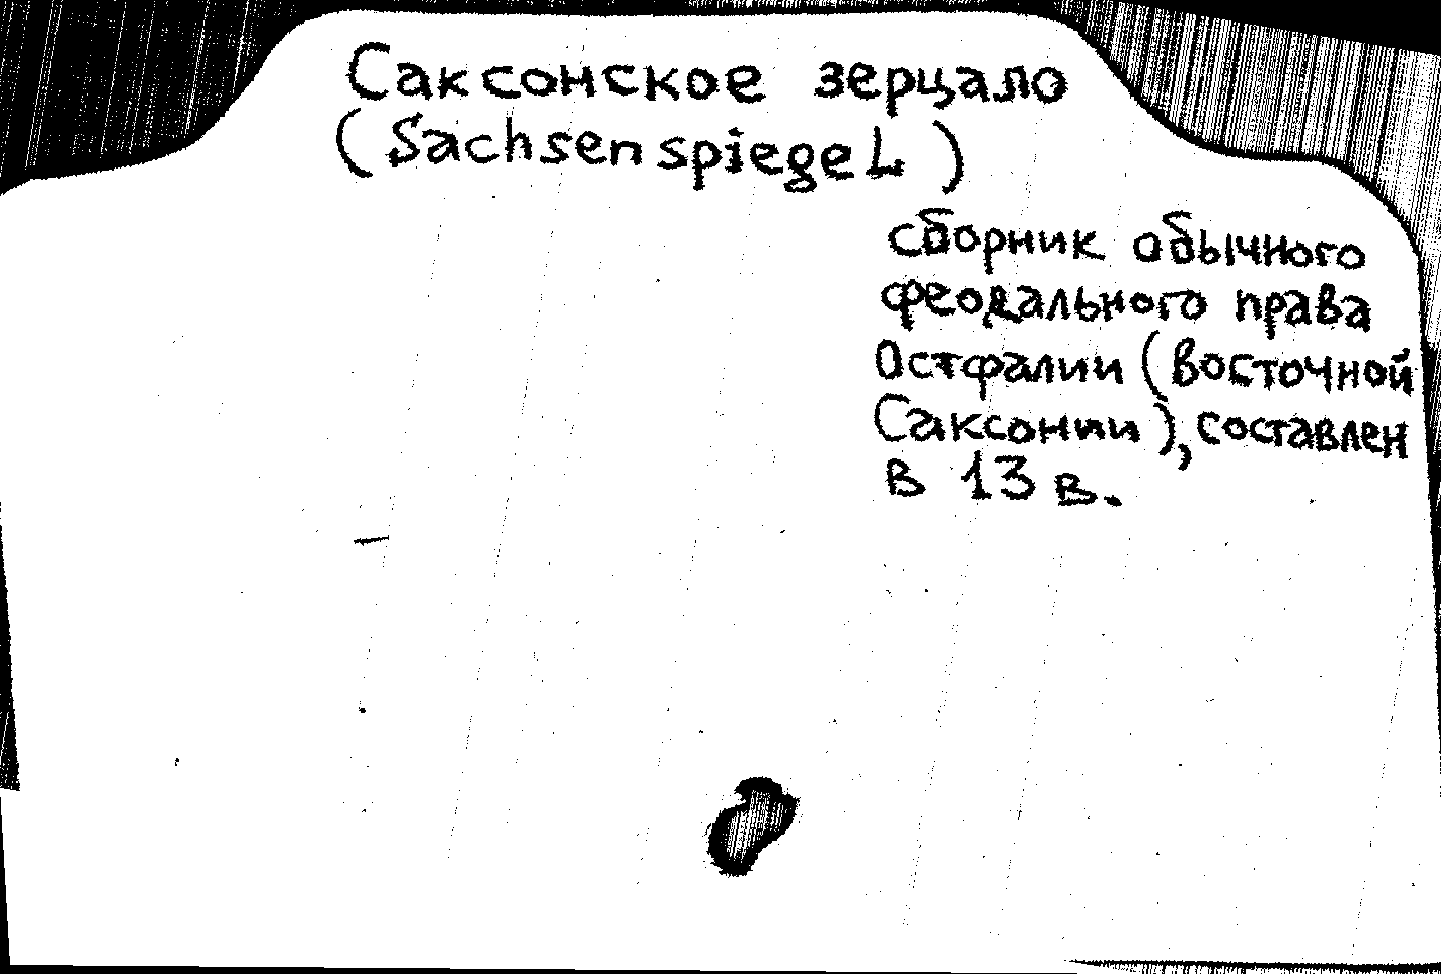 Саксонское зерцало
(Sachsenspiegel)
сборник обычного
феодального права
Остфалии (восточной
Саксонии), составлен
в 13 в.